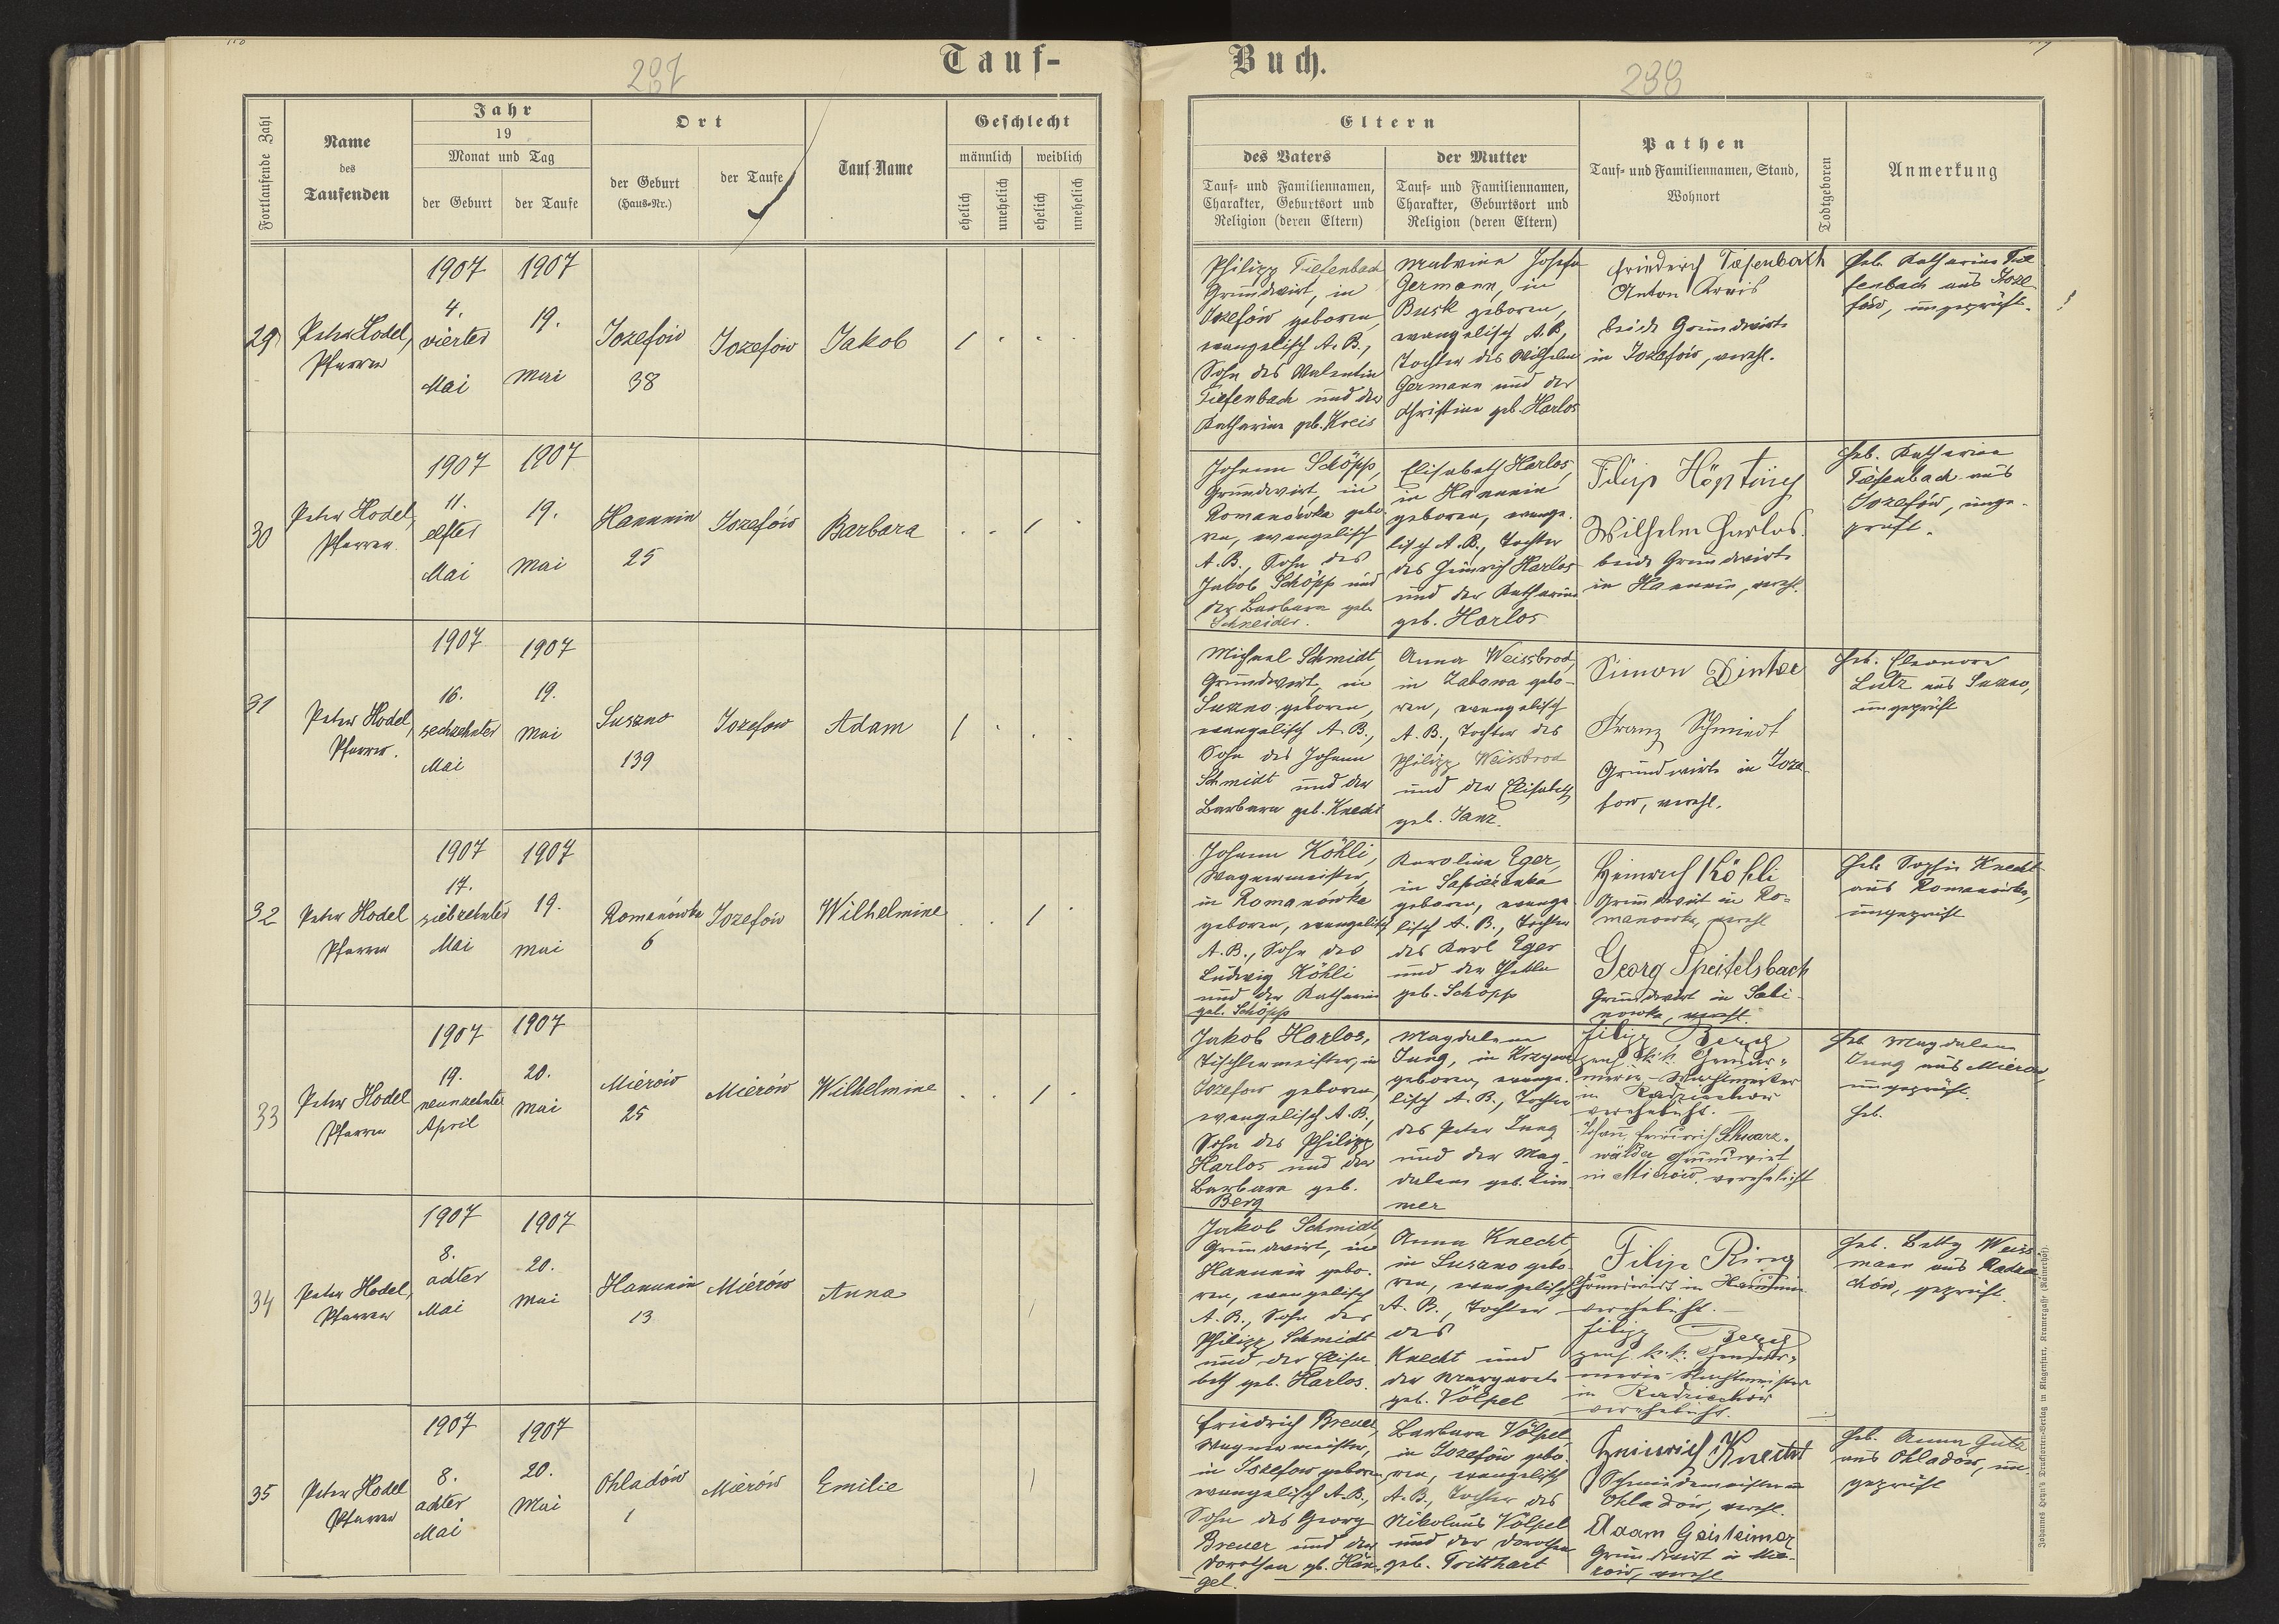 Tauf-
Buch.
287
288
Fortlaufende Zahl
Name
des
Taufenden
Jahr
19
Monat und Tag
der Geburt
der Taufe
Ort
der Geburt
(Haus-Nr.)
der Taufe
Tauf-Name
Geschlecht
männlich
weiblich
ehelich
unehelich
ehelich
unehelich
Eltern
des Vaters
Tauf- und Familiennamen,
Charakter, Geburtsort und
Religion (deren Eltern)
der Mutter
Tauf- und Familiennamen,
Charakter, Geburtsort und
Religion (deren Eltern)
Pathen
Tauf- und Familiennamen, Stand,
Wohnort
Todtgeboren
Anmerkung
29
Peter Hodel,
Pfarrer
1907
4.
vierter
Mai
1907
19.
Mai
Jozefów
38
Jozefów
Jakob
1
Philipp Tiefenbach
Grundwirt, in
Jozefów geboren,
evangelisch A. B.,
Sohn des Valentin
Tiefenbach und der
Katharina geb. Kreis
Malvina Josefa
Germann, in
Busk geboren,
evangelisch A. B.,
Tochter des Wilhelm
Germann und der
Christina geb. Harlos
Friedrich Tiefenbach
Anton Kreis
beide Grundwirte
in Jozefów, verehl.
Heb. Katharina Tie
fenbach aus Joze
fów, ungeprüft.
30
Peter Hodel,
Pfarrer.
1907
11.
elfter
Mai
1907
19.
Mai
Hanunin
25
Jozefów
Barbara
1
Johann Schöpp,
Grundwirt, in
Romanówka gebo
ren, evangelisch
A. B., Sohn des
Jakob Schöpp und
der Barbara geb.
Schneider.
Elisabeth Harlos,
in Hanunin
geboren, evange-
lisch A. B., Tochter
des Heinrich Harlos
und der Katharina
geb. Harlos
Filip
Wilhelm Harlos
beide Grundwirte
in Hanunin, verehl.
Heb. Katharina
Tiefenbach aus
Jozefów, unge-
prüft.
31
Peter Hodel,
Pfarrer.
1907
16.
sechzehnter
Mai
1907
19.
Mai
Suszno
139
Jozefow
Adam
1
Michael Schmidt,
Grundwirt, in
Suszno geboren,
evangelisch A. B.,
Sohn des Johann
Schmidt und der
Barbara geb. Knecht
Anna Weissbrod,
in Zabawa gebo-
ren, evangelisch
A. B., Tochter des
Philipp Weissbrod
und der Elisabeth
geb. Janz.
Simon
Franz Schmidt
Grundwirte in Joze
fow, verehl.
Heb. Eleonora
Lutz aus Suszno,
ungeprüft
32
Peter Hodel
Pfarrer
1907
17.
siebzehnter
Mai
1907
19.
Mai
Romanówka
6
Jozefow
Wilhelmine
1
Johann Köhli,
Wagnermeister,
in Romanówka
geboren, evangelisch
A. B., Sohn des
Ludwig Köhli
und der Katharina
geb. Schöpp
Karolina Eger,
in Sapiezanka
geboren, evange-
lisch A. B., Tochter
des Karl Eger
und der
geb. Schöpp
Heinrich Köhli
Grundwirt in Ro-
manowka, verehl
Georg Speitelsbach
Grundwirt in Sabi
nowka, verehl.
Heb. Sophia Knecht
aus Romanówka,
ungeprüft
33
Peter Hodel
Pfarrer
1907
19.
neunzehnter
April
1907
20.
Mai
Mierów
25
Mierów
Wilhelmine
1
Jakob Harlos,
Tischlermeister, in
Jozefow geboren,
evangelisch A. B.,
Sohn des Philipp
Harlos und der
Barbara geb.
Berg
Magdalena
Jung, in
geboren, evange-
lisch A. B., Tochter
des Peter Jung
und der Mag-
dalena geb. Kim
mer
Filipp Berg
pens. k. k. Gendar-
merie-Wachtmeister
in Radziechow
verehelicht.
Johann Friedrich Schwarz-
wälder Grundwirt
in Mierow, verehelicht
Heb. Magdalena
Jung aus Mierow,
ungeprüft.
Heb.
34
Peter Hodel,
Pfarrer
1907
8.
achter
Mai
1907
20.
Mai
Hanunin
13
Mierów
Anna
1
Jakob Schmidt,
Grundwirt, in
Hanunin gebo-
ren, evangelisch
A. B., Sohn des
Philipp Schmidt
und der Elisa
beth geb. Harlos.
Anna Knecht,
in Suszno gebo-
ren, evangelisch
A. B., Tochter
des
Knecht und
der Margareta
geb. Völpel
Filip Ring
Grundwirt in Hanunin
verehelicht.
Filipp Berg
pens. k. k. Gendar-
merie-Wachtmeister
in Radziechow
verehelicht.
Heb. Betty Weiss
mann aus Radzie
chów, geprüft.
35
Peter Hodel
Pfarrer
1907
8.
achter
Mai
1907
20.
Mai
Ohladów
1
Mierów
Emilie
1
Friedrich Breuer,
Wagnermeister,
in Jozefow geboren,
evangelisch A. B.,
Sohn des Georg
Breuer und der
Dorothea geb. Hän-
gel.
Barbara Völpel
in Jozefów gebo-
ren, evangelisch
A. B., Tochter des
Nikolaus Völpel
und der Dorothea
geb. Tritthart
Heinrich Knecht
Schmiedemeister in
Ohladów, verehl.
Adam Geisheimer
Grundwirt in Mie-
row, verehl
Heb. Anna Gutz
aus Ohladów, un-
geprüft
Johannes Heyn's Drucksorten-Verlag in Klagenfurt, Kramergasse (Rainerhof).